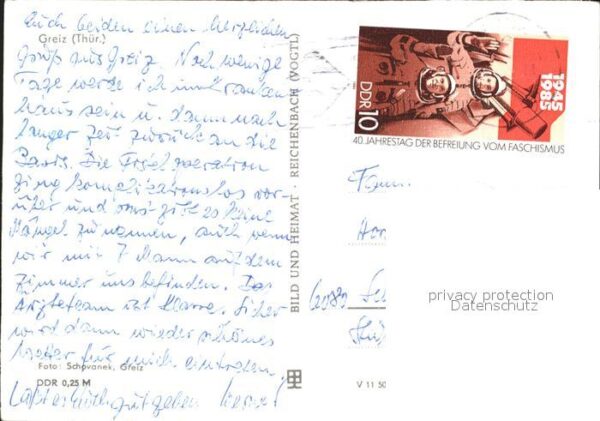 Euch beiden einen herzlichen
Greiz (Thür.)
Gruß aus Greiz. Noch wenige
Tage werde ich im Kranken
haus sein u. dann nach
langer Zeit zurück an die
Basis. Die operation
ging komplikationslos vor-
über und es gibt keine
Mängel zu nennen, auch wenn
wir mit 7 Mann auf dem
Zimmer uns befinden. Das
Ärzteteam ist Klasse. Sicher
wird dann wieder schönes
Wetter für mich eintreten!
Foto: Schovanek, Greiz
DDR 0,25 M
Laßt es Euch gut gehen
BILD UND HEIMAT · REICHENBACH (VOGTL)
DDR 10
1945
1985
40. JAHRESTAG DER BEFREIUNG VOM FASCHISMUS
Fam.
privacy protection
Datenschutz
V 11 50